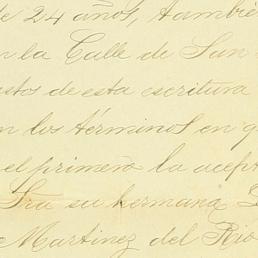 de 24 años, tambié
n la Calle de San
stos de esta escritura
n los términos en q
el primero la acept
Sra su hermana D
Martinez del Rio